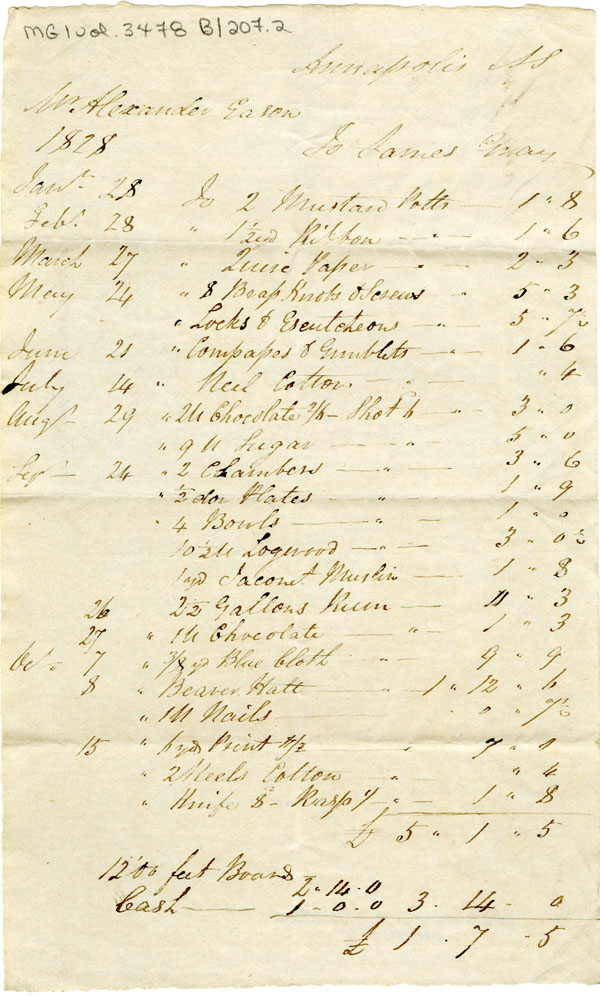 MG 1 vol. 3478 B/207.2
Annapolis NS
Mr Alexander Eason
1828 To James Gray
Jany. 28 To 2 Mustard Potts — 1 " 8
Feby. 28 " 1½ yd Ribbon — 1 " 6
March 27 " Quire Paper " 2 " 3
May 24 " 8 Brass Knobs & Screws " 5 " 3
" Locks & Escutcheons — " 5 " 7½
June 21 " Compasses & Gimblets — " 1 " 6
July 14 " Reel Cotton — " " 4
Augt 29 " 2 lb Chocolate — Shot — " 3 " 0
" 9 lb Sugar — " 5 " 0
Sepr 24 " 2 Chambers — " 3 " 6
" ½ doz Plates — " 1 " 9
" 4 Bowls — " 1 " 0
10½ lb Logwood — " 3 " 0½
1 yd Jaconet Muslin — 1 " 8
26 2½ Gallons Rum — 11 " 3
27 " 1 lb Chocolate " 1 " 3
Oct " 7 " 7/8 yd Blue Cloth — " 9 " 9
8 " Beaver Hatt — 1 " 12 " 6
" 1 lb Nails — " 0 " 7½
15 " 6 yd Print " 7 " 0
" 2 Reels Cotton — " " 4
" Knife 8- Rasp 1/ " 1 " 8
£ 5 " 1 " 5
1200 feet Boards
2 " 14 - 0
Cash — 1 - 0 - 0 3 - 14 - 0
£ 1 - 7 - 5